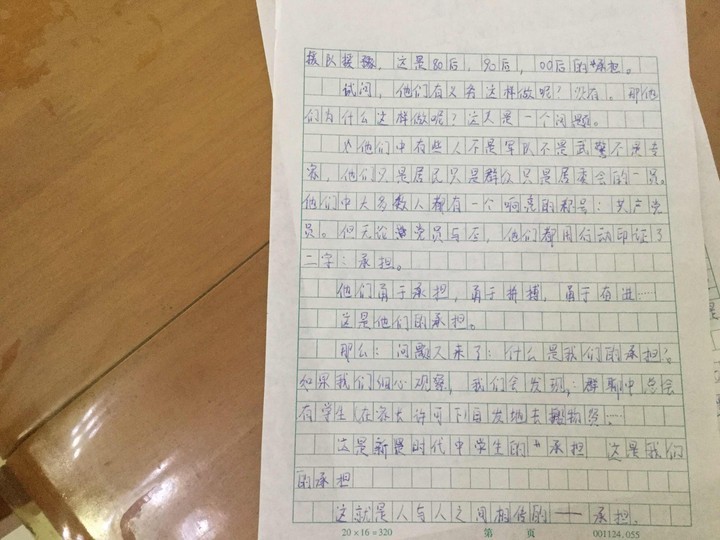 援队接穆，这是80后，90后，00后的"承担。
试问，他们有义务这样做呢？没有。那他
们为什么这样做呢？这又是一个问题。
他们中有些人不是军队不是武警不是专
家，他们只是居民只是群众只是居委会的一员。
他们中大多数人都有一个响亮的称号：共产党
员。但无论党员与否，他们都用行动印证了
二字：承担。
他们勇于承担，勇于拼搏，勇于奋进……
这是他们的承担。
那么：问题又来了：什么是我们的承担？
如果我们细心观察，我们会发现，：群聊中总会
有学生（在家长许可下）自发地去搬物资……
这是新时代中学生的"承担 这是我们
的承担
这就是人与人之间相传的——承担。
20×16=320 第 页 001124.055